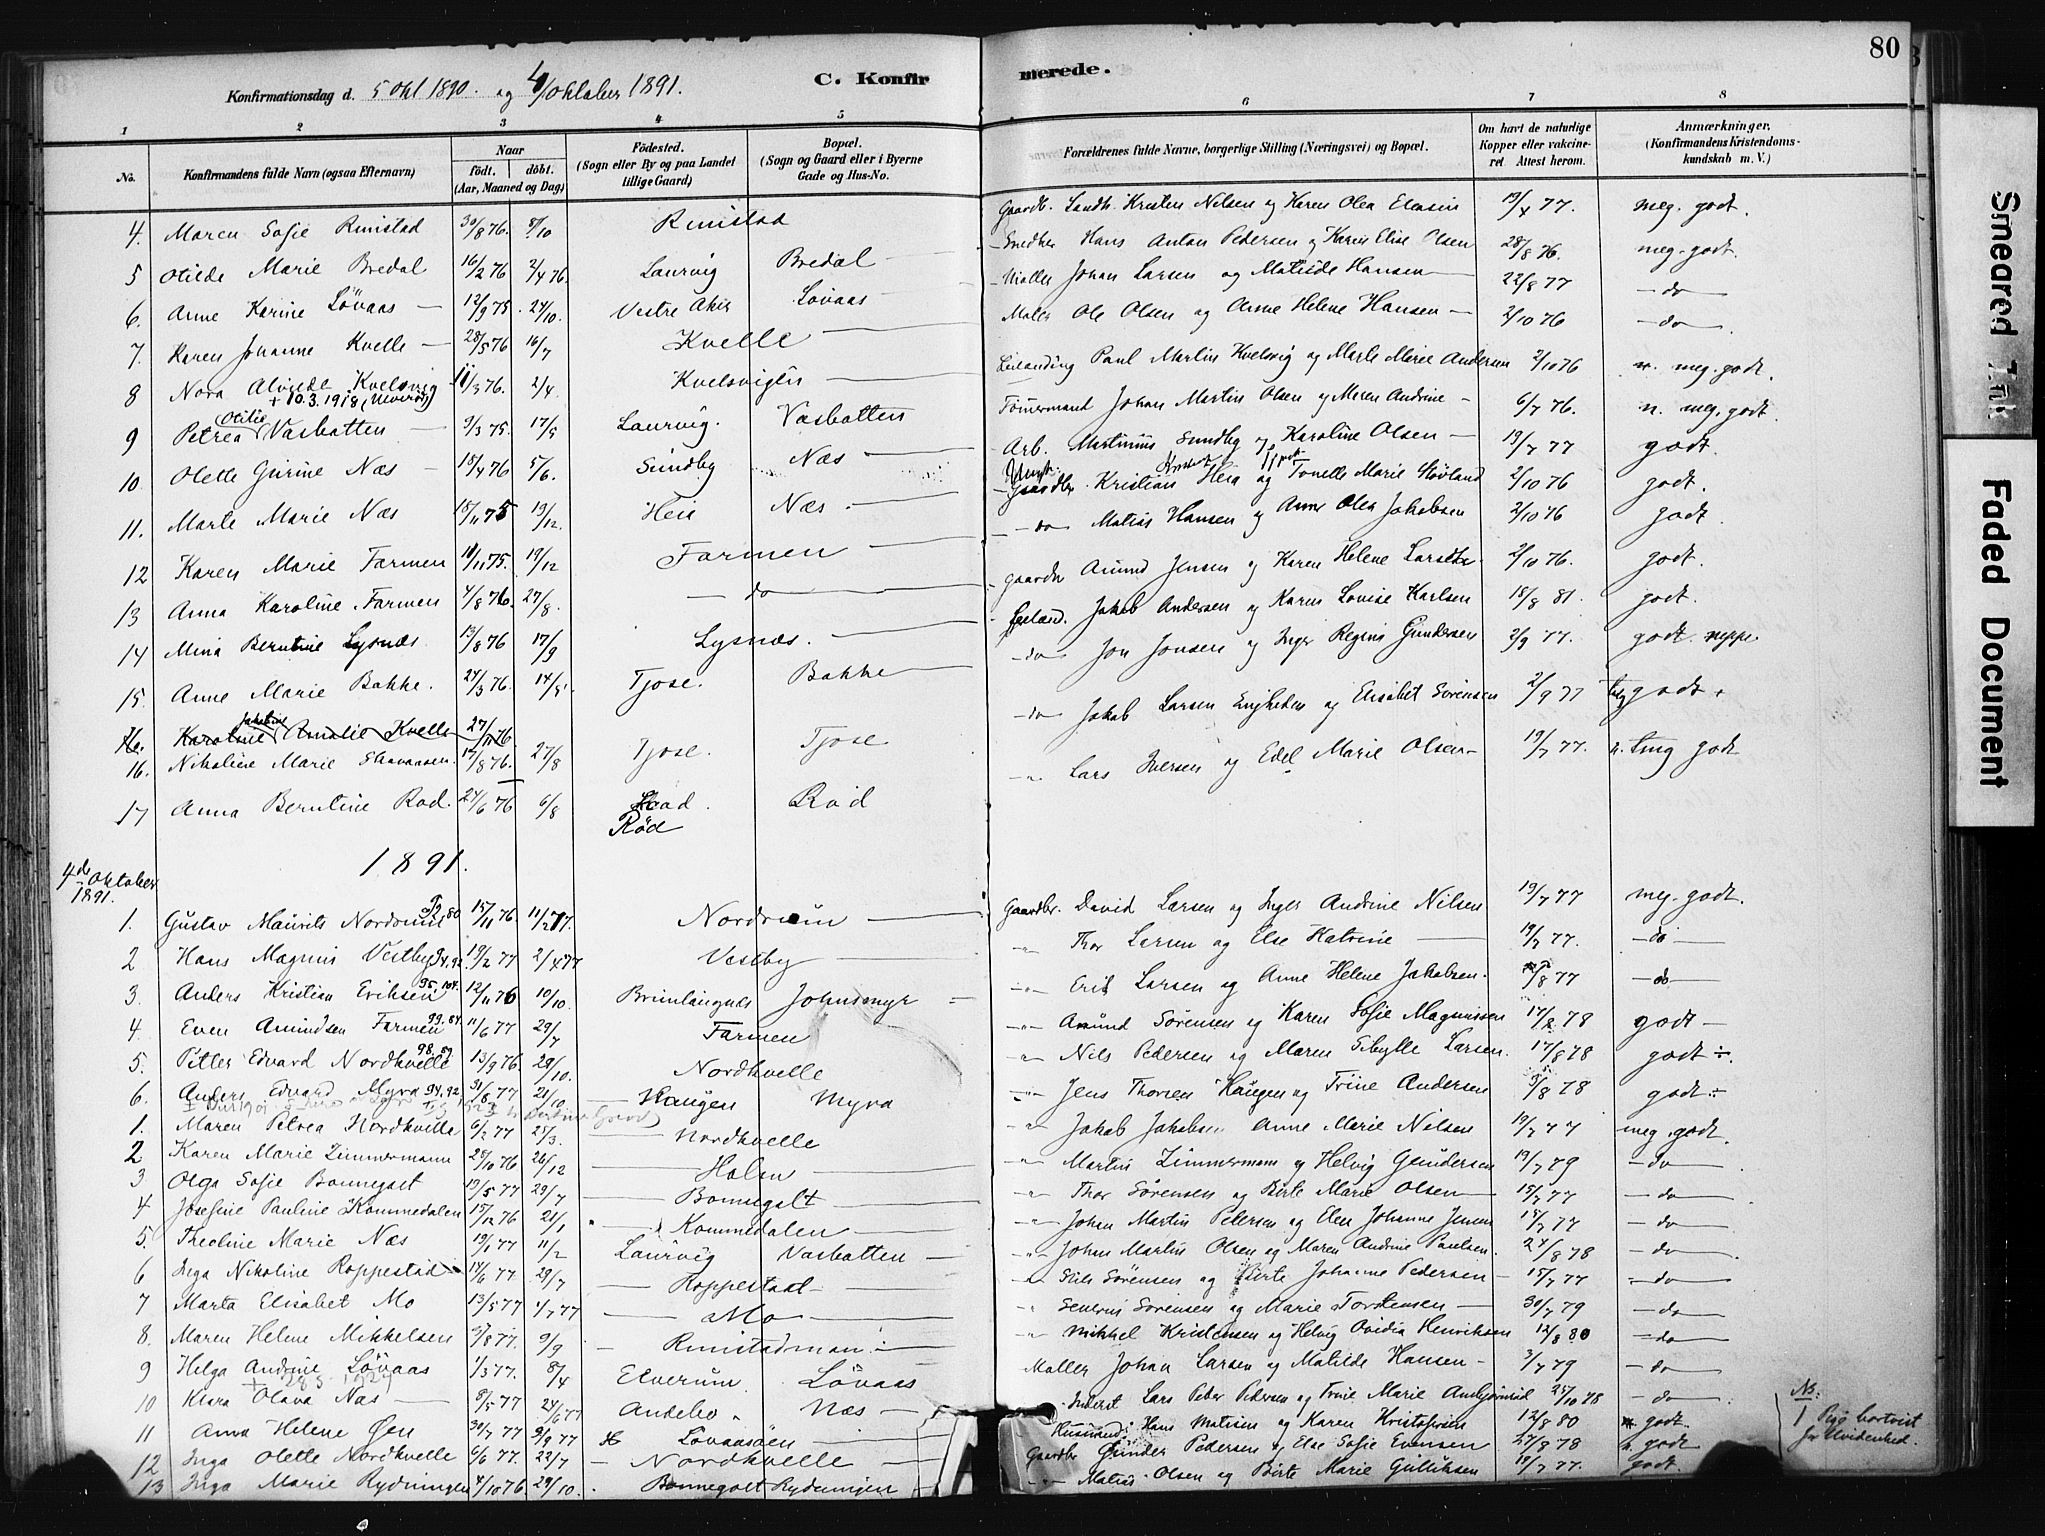 80
C. Konfir merede.
Konfirmationsdag d. 5 Okt 1890. og 4/ Oktober 1891.
1 2 3 4 5 6 7 8
No.
Konfirmandens fulde Navn (ogsaa Efternavn)
Naar
født. døbt.
(Aar, Maaned og Dag)
Fødested.
(Sogn eller By og paa Landet
tillige Gaard)
Bopæl.
(Sogn og Gaard eller i Byerne
Gade og Hus-No.
Forældrenes fulde Navne, borgerlige Stilling (Næringsvei) og Bopæl.
Om havt de naturlige
Kopper eller vakcine-
ret. Attest herom.
Anmærkninger.
(Konfirmandens Kristendoms-
kundskab m. V.)
4. Maren Sofie Rimstad 30/8 76. 8/10 Rimstad Gaardb. Kristen Nilsen og Karen Olea 19/4 77. meg. godt.
5 Otilde Marie Bredal 16/2 76 2/4 76. Laurvig Bredal Hans Anton Pedersen og Karen Elise Olsen 28/8 76. meg. godt.
6. Anne Karine Lövaas 12/9 75. 24/10. Vestre Aker Lövaas Møller Johan Larsen og Matilde Hansen 22/8 77 do
7. Karen Johanne Kvelle 28/5 76 16/7 Kvelle Maler Ole Olsen og Anne Helene Hansen 2/10 76 do
8 Nora Alvilde Kvelsvig 11/3 76. 2/4. Kvelsvigen Leilænding Paul Martin Kvelsvig og Marte Marie Andersen 2/10 76 n. meg. godt.
+ 10.3.1918
9 Petrea Otilie Vasbotten 9/3 75. 17/5 Laurvig. Vasbotten Tømmermand Johan Martin Olsen og Maren Andrine 6/7 76. n. meg. godt
10. Olette Gurine Næs 15/4 76 5/6. Sundby Næs Arb. Martinius Sundby og Karoline Olsen 19/7 77 godt
11. Marte Marie Næs 15/11 75 19/12. Hei Næs. Gaardbr. Kristian Heia og Tonette Marie 2/10 76 godt.
12 Karen Marie Farmen 11/11 75. 19/12 Farmen do Matias Hansen og Anne Olea Jakobsen 2/10 76 godt.
13 Anna Karoline Farmen 4/8 76. 27/8. do gaardbr Amund Jensen og Karen Helene Larsdtr 2/10 76. godt.
14 Mina Berntine Lysnæs 13/8 76 17/9 Lysnæs. Jakob Andersen og Karen Lovise Karlsen 18/8 81. godt.
15. Anne Marie Bakke. 24/3 76. 14/5 Tjose. Bakke do Jon Jonsen og Inger Regine Gundersen 2/9 77. godt.
Karoline Jakobine Amalie Kvelle 27/11 76 do Jakob Larsen og Elisabet Sörensen 2/9 77 godt
16. Nikoline Marie 17/8 76. 27/8 Tjose. Tjose
17 Anna Berntine Rød. 27/6 76 6/8 Rød Rød Lars Iversen og Edel Marie Olsen 19/7 77. godt
4de Oktober
1891.
1891.
1. Gustav Maurits Nordrum 15/11 76 11/2 77. Nordrum Gaardbr. David Larsen og Inger Andrine Nilsen 19/7 77 meg. godt.
2 Hans Magnus Vestby 19/2 77 2/4 77 Vestby Thor Larsen og Else Katrine 19/7 77. do
3. Anders Kristian Eriksen 12/11 76 10/10. Brunlangnæs Johnsmyr Erik Larsen og Anne Helene Jakobsen. /8 77 do
4. Even Amundsen Farmen 11/6 77 29/7 Farmen Amund Sörensen og Karen Sofie Magnussen 17/8 78 godt
5. Petter Edvard Nordkvelle 13/9 76. 29/10. Nordkvelle Nils Pedersen og Maren Sibylle Larsen. 17/8 78 godt ÷.
6. Anders Edvard Myra 31/8 77 21/10 Haugen Myra Jens Thorsen Haugen og Trine Andersen 3/8 78 godt ÷
1. Maren Petrea Nordkvelle 6/2 77 25/3. Nordkvelle Jakob Jakobsen Anne Marie Nilsen 19/7 77 meg. godt.
2 Karen Marie Zimmermann 28/10 76 26/12 Holm Martin Zimmermann og Helvig Gundersen 19/7 79 do
3 Olga Sofie Bonnegolt 19/5 77 29/7 Bonnegolt Thor Sörensen og Berte Marie Olsen 15/7 77 do
4 Josefine Pauline Kommedalen 15/12 76 21/1 Kommedalen Johan Martin Petersen og Elen Johanne Jensen 15/7 77 do
5. Theoline Marie Næs 19/1 77 11/2 Laurvig Vasbotten Johan Martin Olsen og Maren Andrine Paulsen. 24/8 78 do
6 Inga Nikoline Roppestad 14/6 77. 29/7 Roppestad Nils Sörensen og Berte Johanne Pedersen 15/7 77 do
7 Marta Elisabet Mo 13/5 77 1/7 77 Mo Severin Sorensen og Marie Torstensen 30/7 79 do
8. Maren Helene Mikkelsen 3/8 77. 9/9 Rimstadmoen Mikkel Kristensen og Helvig Ovidia Henriksen 12/8 80 do
9 Helga Andrine Lövaas 1/3 77. 8/4 Elverum Lövaas Møller Johan Larsen og Matilde Hansen 3/7 79 do
10 Klara Olava Næs 8/5 77 24/6 77 Andebo Næs Inderst Lars Peder Pedersen og Trine Marie 25/10 78 do
11 Anna Helene Öen 30/7 77 9/9 77 Lövaasöen Husmand Hans Matisen og Karen Kristofersen 12/8 80 godt.
12 Inga Olette Nordkvelle 6/6 77. 22/7 Nordkvelle Gaardbr Gunder Pedersen og Else Sofie Evensen 27/8 78 n. godt
13 Inga Marie Rydningen 4/10 76. 29/10. Bonnegolt Rydningen Matias Olsen og Berte Marie Gulliksen 19/7 77. godt.
NB:
1 Pige bortvist
for Uvidenhed.
Smeared Ink
Faded Document